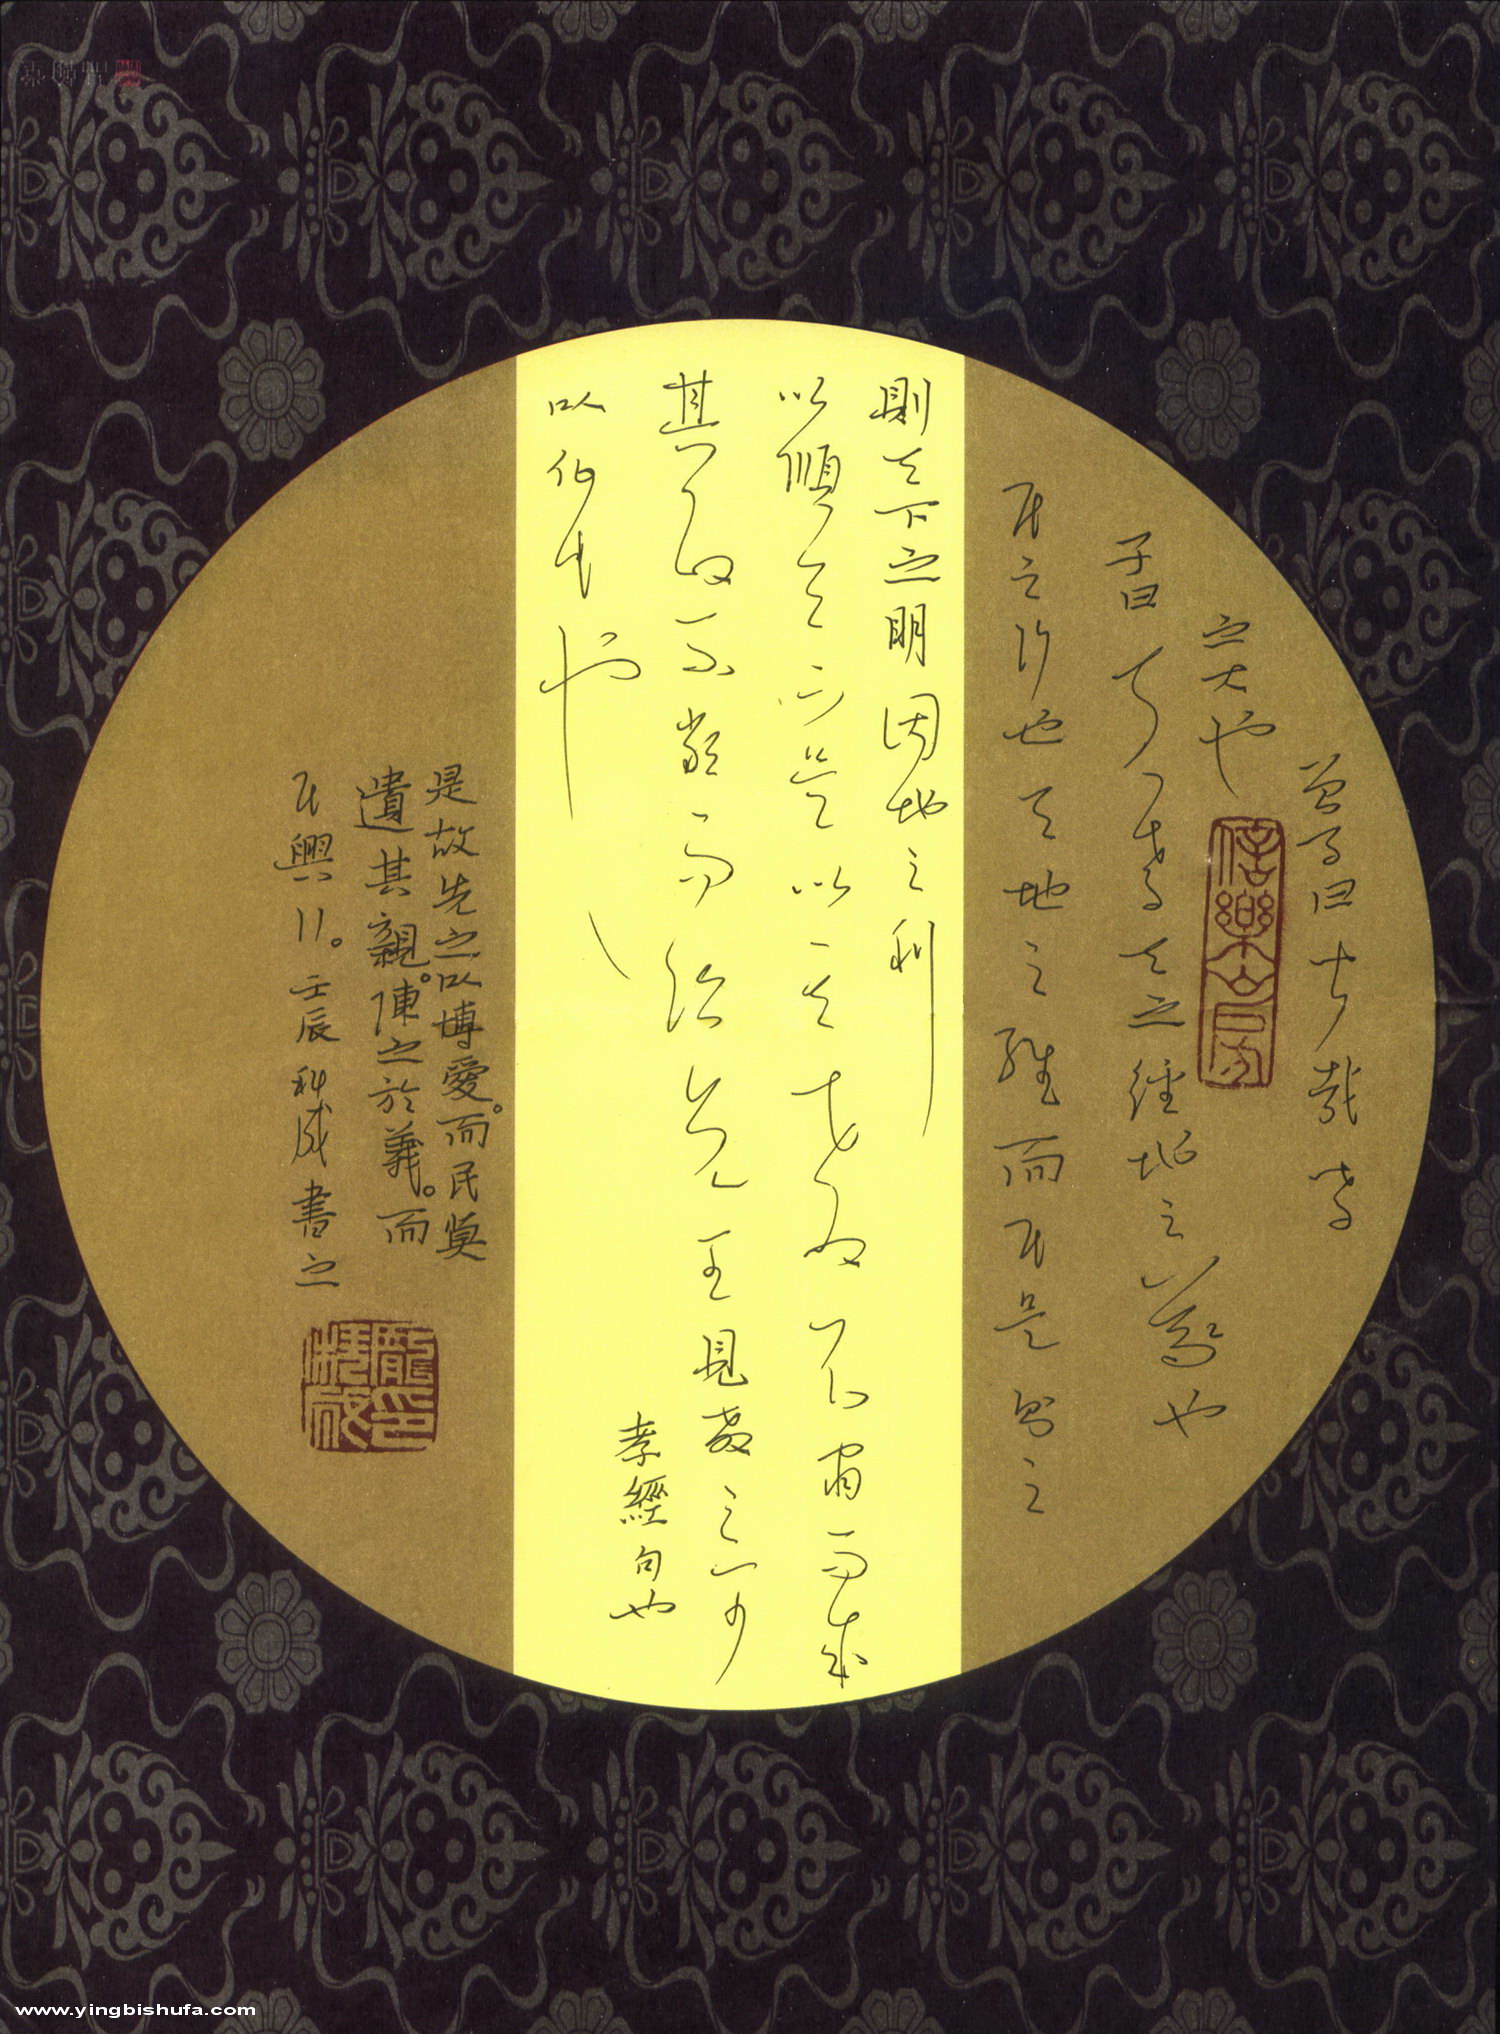 曾子曰甚哉孝
之大也
信樂山房
子曰夫孝天之經地之義也
民之行也天地之經而民是則之
則天下之明因地之利
以順天下是以其教不肅而成
其政不嚴而治先王見教之可
以化民也
孝經句也
是故先之以博愛。而民莫
遺其親。陳之於義。而
民興行。壬辰科書之
www.yingbishufa.com